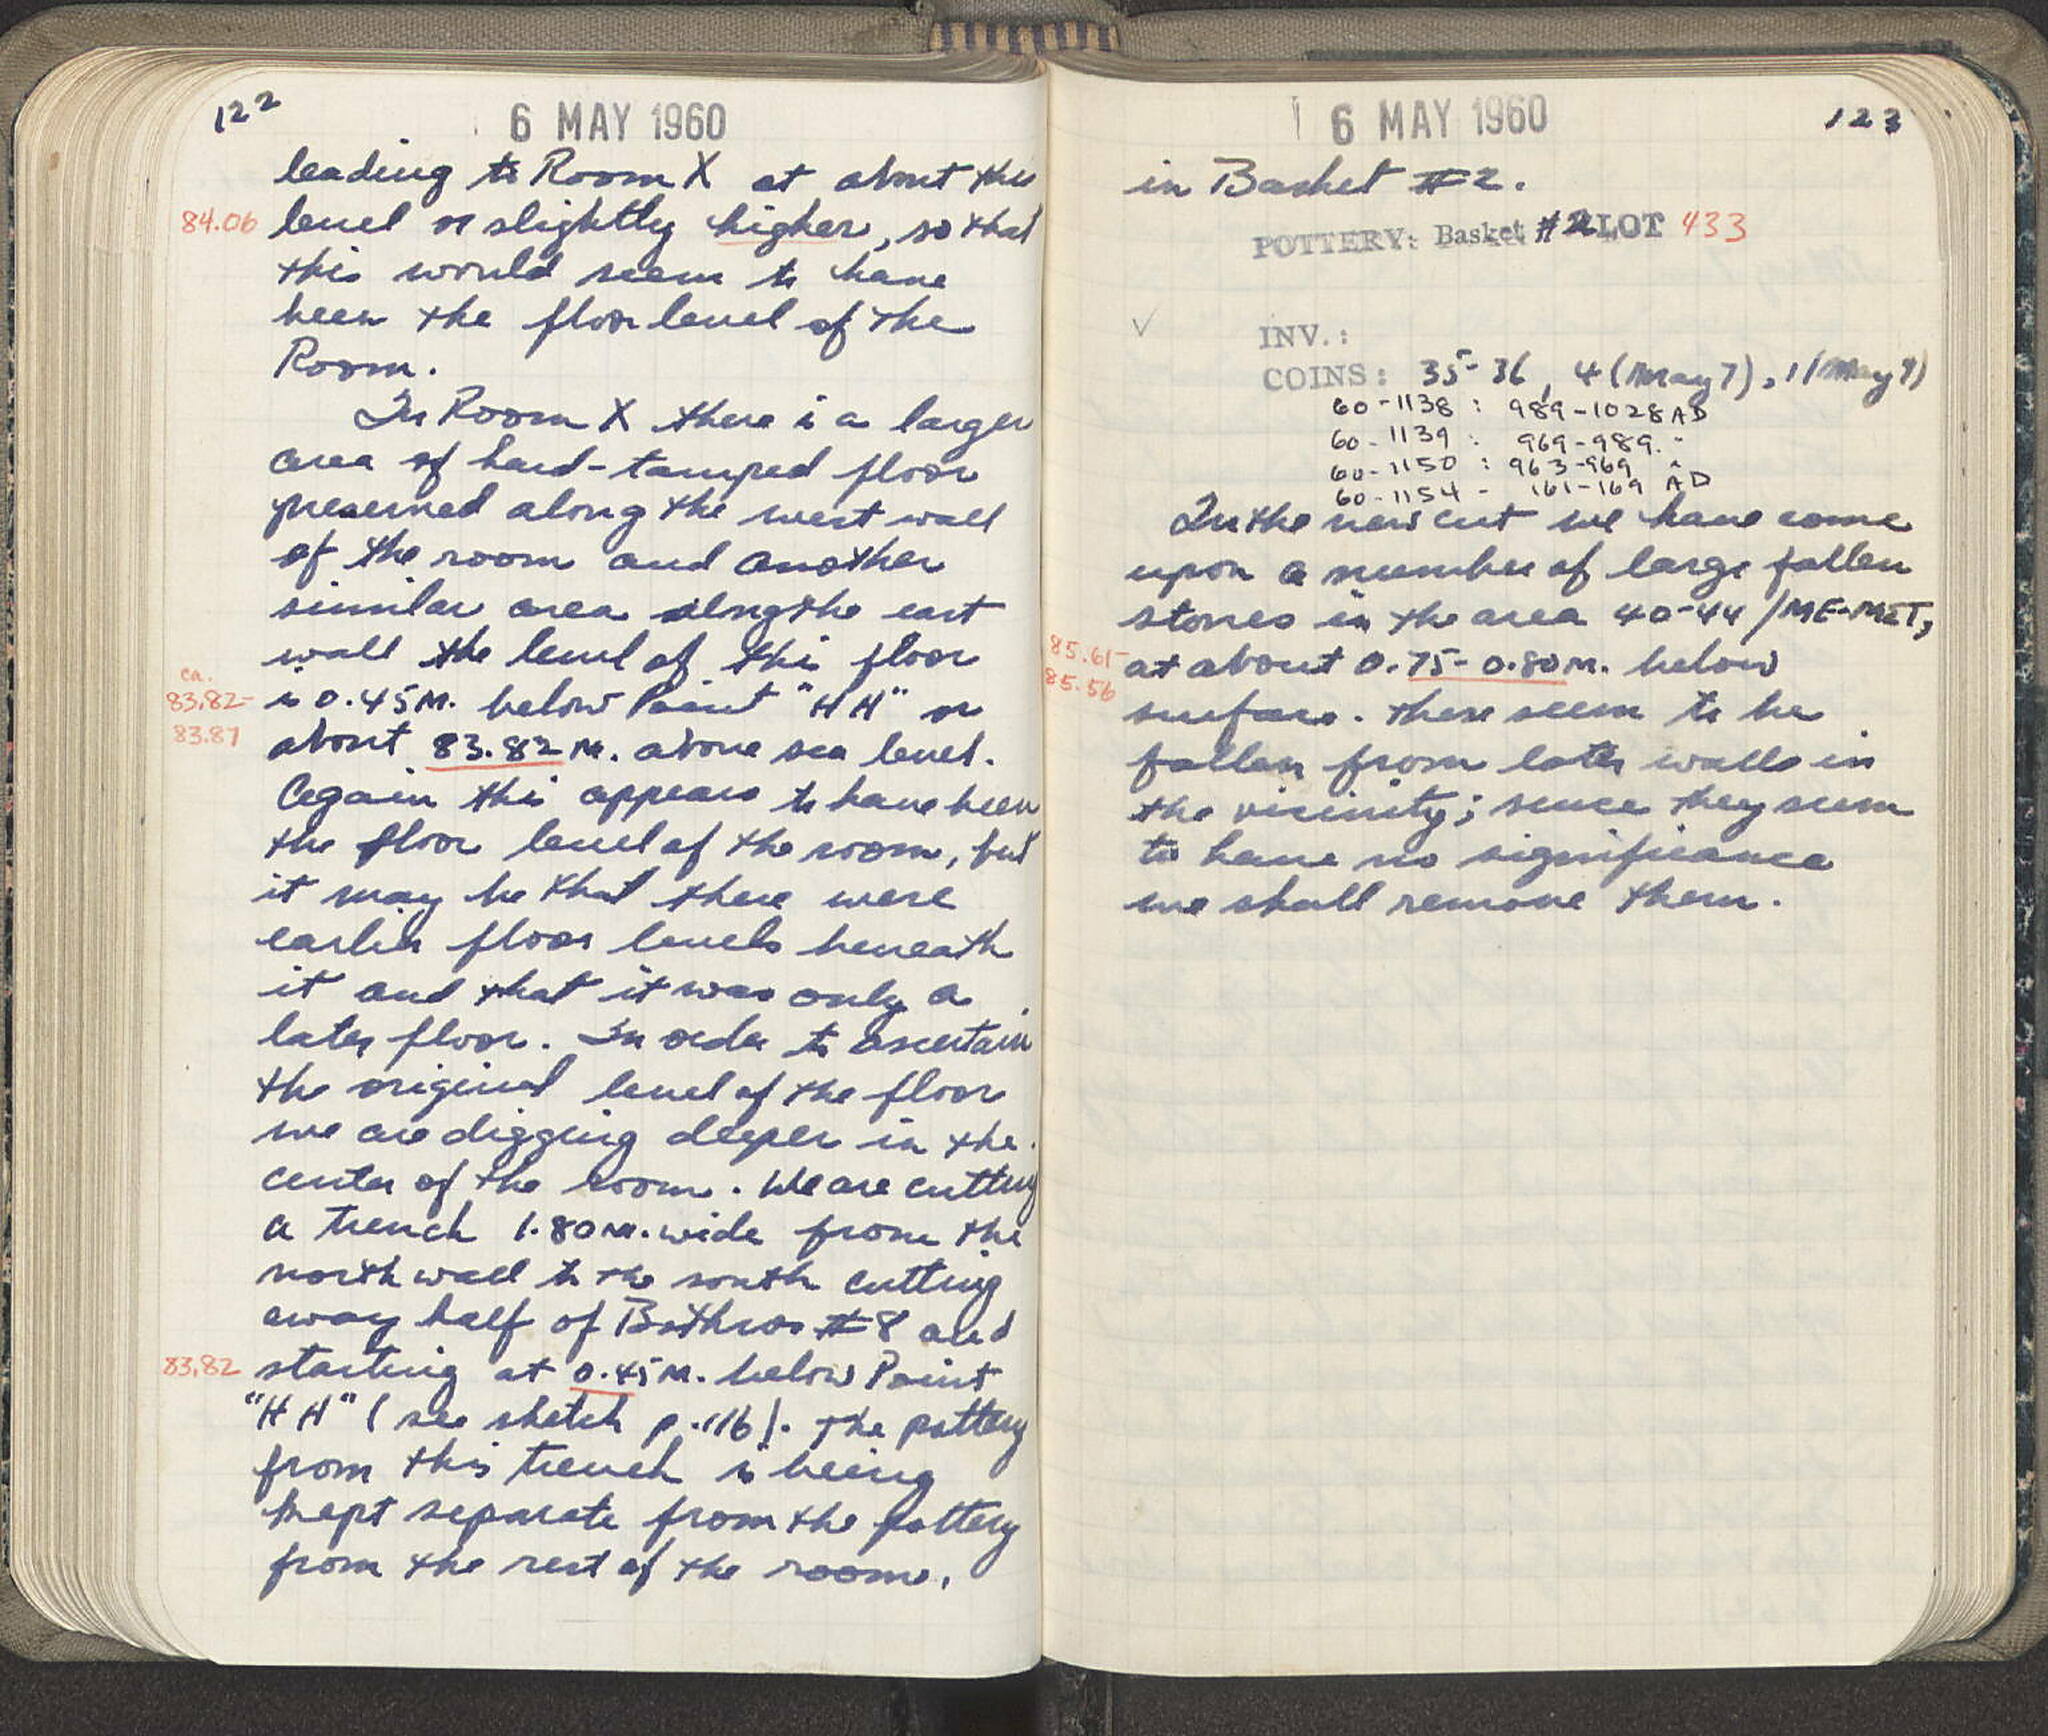 122
6 MAY 1960
leading to Room X at about this
84.06 level or slightly higher, so that
this would seem to have
been the floor level of the
Room.
In Room X there is a larger
area of hard-tamped floor
preserved along the west wall
of the room and another
similar area along the east
wall the level of this floor
ca.
83.82- is 0.45M. below Point "HH" or
83.87 about 83.82 M. above sea level.
Again this appears to have been
the floor level of the room, but
it may be that there were
earlier floor levels beneath
it and that it was only a
later floor. In order to ascertain
the original level of the floor
we are digging deeper in the
center of the room. We are cutting
a trench 1.80 M. wide from the
north wall to the south cutting
away half of Bothros #8 and
83.82 starting at 0.45 M. below Point
"HH" (see sketch p. 116). The pottery
from this trench is being
kept separate from the pottery
from the rest of the room.
6 MAY 1960
123
in Basket #2.
POTTERY: Basket #2 LOT 433
✓ INV.:
COINS: 35-36, 4 (May 7), 1 (May 9)
60-1138 : 989-1028 AD
60-1139 : 969-989 "
60-1150 : 963-969 "
60-1154 - 161-169 AD
In the new cut we have come
upon a number of large fallen
stones in the area 40-44/ME-MET,
85.61- at about 0.75-0.80 M. below
85.56 surface. These seem to be
fallen from later walls in
the vicinity; since they seem
to have no significance
we shall remove them.